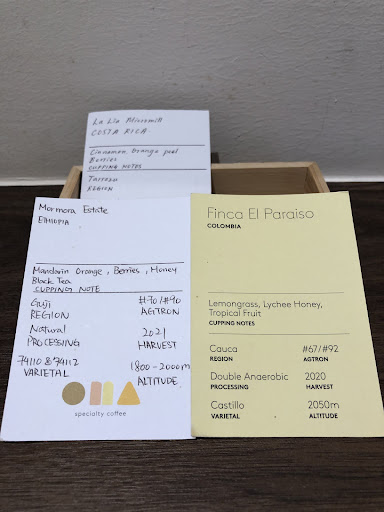 La Lia Micromill
COSTA RICA
Cinnamon, Orange peel
Berries
CUPPING NOTES
Tarrazu
REGION
Mormora Estate
ETHIOPIA
Mandarin Orange, Berries, Honey
Black Tea
CUPPING NOTE
Guji #70/#90
REGION AGTRON
Natural 2021
PROCESSING HARVEST
74110 & 74112 1800-2000m
VARIETAL ALTITUDE
OMA
specialty coffee
Finca El Paraiso
COLOMBIA
Lemongrass, Lychee Honey,
Tropical Fruit
CUPPING NOTES
Cauca #67/#92
REGION AGTRON
Double Anaerobic 2020
PROCESSING HARVEST
Castillo 2050m
VARIETAL ALTITUDE